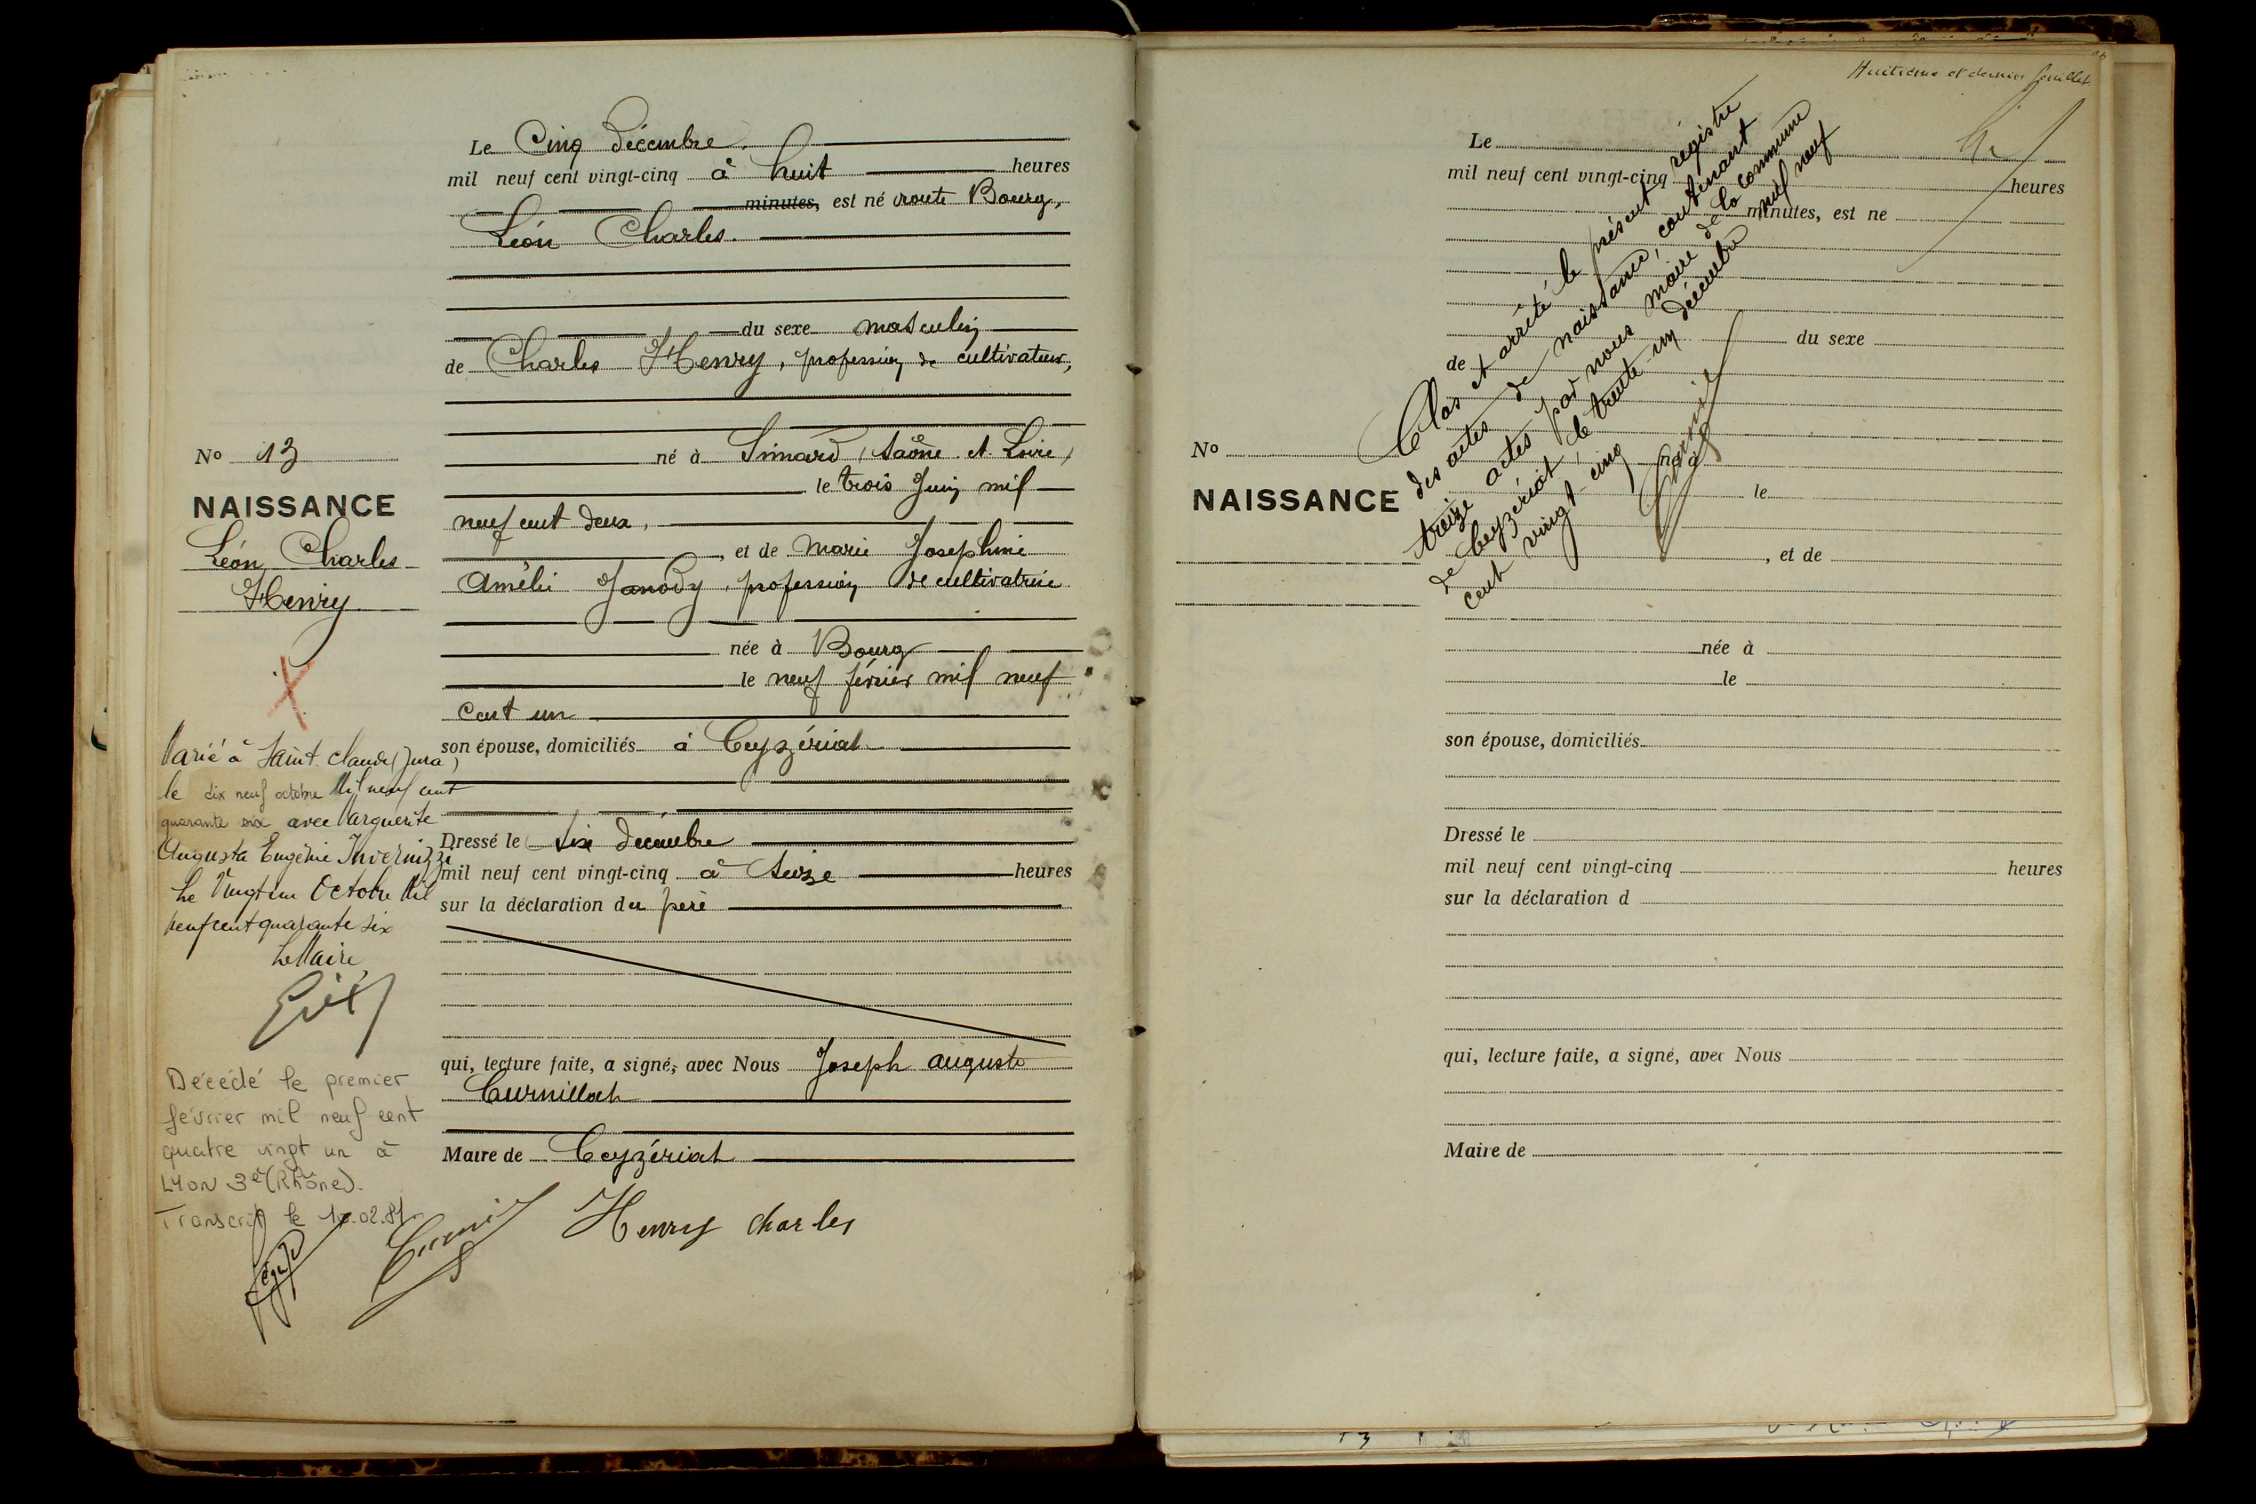 Le Cinq décembre
mil neuf cent vingt-cinq à huit heures
minutes, est né route Bourg,
Léon Charles.
du sexe masculin
de Charles Henry, profession de cultivateur,
né à Simard (Saône et Loire)
le trois Juin mil
neuf cent deux,
, et de Marie Josephine
Amélie Janody, profession de cultivatrice
née à Bourg
le neuf février mil neuf
cent un
son épouse, domiciliés à Ceyzériat
Dressé le six décembre
mil neuf cent vingt-cinq à seize heures
sur la déclaration du père
qui, lecture faite, a signé, avec Nous Joseph Auguste
Curnillach
Maire de Ceyzériat
Henry Charles
No 13
NAISSANCE
Léon Charles
Henry
Marié à Saint Claude (Jura)
le dix neuf octobre Mil neuf cent
quarante six avec Marguerite
Augusta Eugénie Invernizzi
Le Vingt un Octobre Mil
neuf cent quarante six
Le Maire
Décédé le premier
février mil neuf cent
quatre vingt un à
Lyon 3e (Rhône).
Transcrit le 02.81
Huitième et dernier feuillet
Le
mil neuf cent vingt-cinq heures
minutes, est né
du sexe
de
né à
le
, et de
née à
le
son épouse, domiciliés
Dressé le
mil neuf cent vingt-cinq heures
sur la déclaration d
qui, lecture faite, a signé, avec Nous
Maire de
No
NAISSANCE
Clos et arrêté le présent régistre
des actes de naissance, contenant
treize actes par nous maire de la commune
de Ceyzériat, le trente un décembre mil neuf
cent vingt-cinq